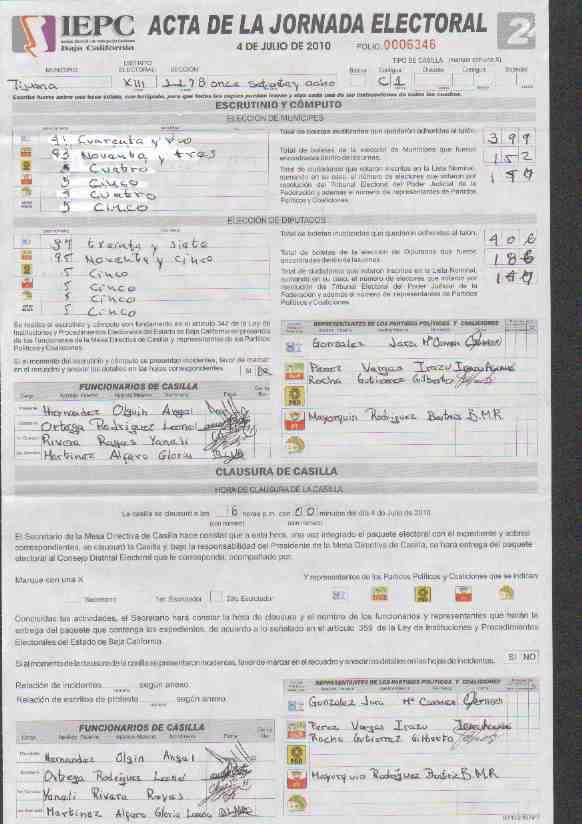 IEPC
Baja California
ACTA DE LA JORNADA ELECTORAL
2
4 DE JULIO DE 2010
FOLIO: 0006346
TIPO DE CASILLA (marcar con una X)
MUNICIPIO DISTRITO ELECTORAL SECCIÓN
Tijuana XIII once setenta y ocho C1
ESCRUTINIO Y CÓMPUTO
ELECCIÓN DE MUNÍCIPES
41 Cuarenta y uno
93 Noventa y tres
Cuatro
5 Cinco
4 Cuatro
5 Cinco
Total de boletas inutilizadas que quedarón adheridas al talón. 399
Total de boletas de la elección de Munícipes que fueron encontradas dentro de las urnas. 152
Total de ciudadanos que votaron inscritos en la Lista Nominal, sumando en su caso, el número de electores que votaron por resolución del Tribunal Electoral del Poder Judicial de la Federación y además el número de representantes de Partidos Políticos y Coaliciones.
ELECCIÓN DE DIPUTADOS
37 treinta y siete
95 Noventa y cinco
5 Cinco
5 Cinco
5 Cinco
5 Cinco
Total de boletas inutilizadas que quedarón adheridas al talón.
Total de boletas de la elección de Diputados que fueron encontradas dentro de las urnas.
Total de ciudadanos que votaron inscritos en la Lista Nominal, sumando en su caso, el número de electores que votaron por resolución del Tribunal Electoral del Poder Judicial de la Federación y además el número de representantes de Partidos Políticos y Coaliciones.
Se realiza el escrutinio y cómputo con fundamento en el artículo 342 de la Ley de Instituciones y Procedimientos Electorales del Estado de Baja California en presencia de los Funcionarios de la Mesa Directiva de Casilla y representantes de los Partidos Políticos y Coaliciones.
Si al momento del escrutinio y cómputo se presentan incidentes, favor de marcar en el recuadro y anexar los detalles en las hojas correspondientes.
REPRESENTANTES DE LOS PARTIDOS POLÍTICOS Y COALICIONES
Gonzalez Jara Ma Carmen
Perez Vargas Irazu
Rocha Gutierrez Gilberto
Mayorquin Rodriguez Beatriz B.M.R
FUNCIONARIOS DE CASILLA
Hernandez Olguin Angel
Ortega Rodriguez Leonel
Rivera Rayas Yanali
Martinez Alfaro Gloria
CLAUSURA DE CASILLA
HORA DE CLAUSURA DE LA CASILLA
La casilla se clausuró a las 6 horas p.m. con 00 minutos del día 4 de Julio de 2010.
El Secretario de la Mesa Directiva de Casilla hace constar que a esta hora, una vez integrado el paquete electoral con el expediente y sobres correspondientes, se clausuró la Casilla y, bajo la responsabilidad del Presidente de la Mesa Directiva de Casilla, se hará entrega del paquete electoral al Consejo Distrital Electoral que le corresponda, acompañado por:
Marque con una X
Y representantes de los Partidos Políticos y Coaliciones que se indican:
Secretario 1er. Escrutador 2do. Escrutador
Concluidas las actividades, el Secretario hará constar la hora de clausura y el nombre de los funcionarios y representantes que harán la entrega del paquete que contenga los expedientes, de acuerdo a lo señalado en el artículo 359 de la Ley de Instituciones y Procedimientos Electorales del Estado de Baja California.
Si al momento de la clausura de la casilla se presentaron incidencias, favor de marcar en el recuadro y anexar los detalles en las hojas de incidentes. SI NO
Relación de incidentes según anexo.
Relación de escritos de protesta según anexo.
REPRESENTANTES DE LOS PARTIDOS POLÍTICOS Y COALICIONES
Gonzalez Jara Ma Carmen
Perez Vargas Irazu
Rocha Gutierrez Gilberto
Mayorquin Rodriguez Beatriz B.M.R
FUNCIONARIOS DE CASILLA
Hernandez Olgin Angel
Ortega Rodriguez Leonel
Yanali Rivera Rayas
Martinez Alfaro Gloria